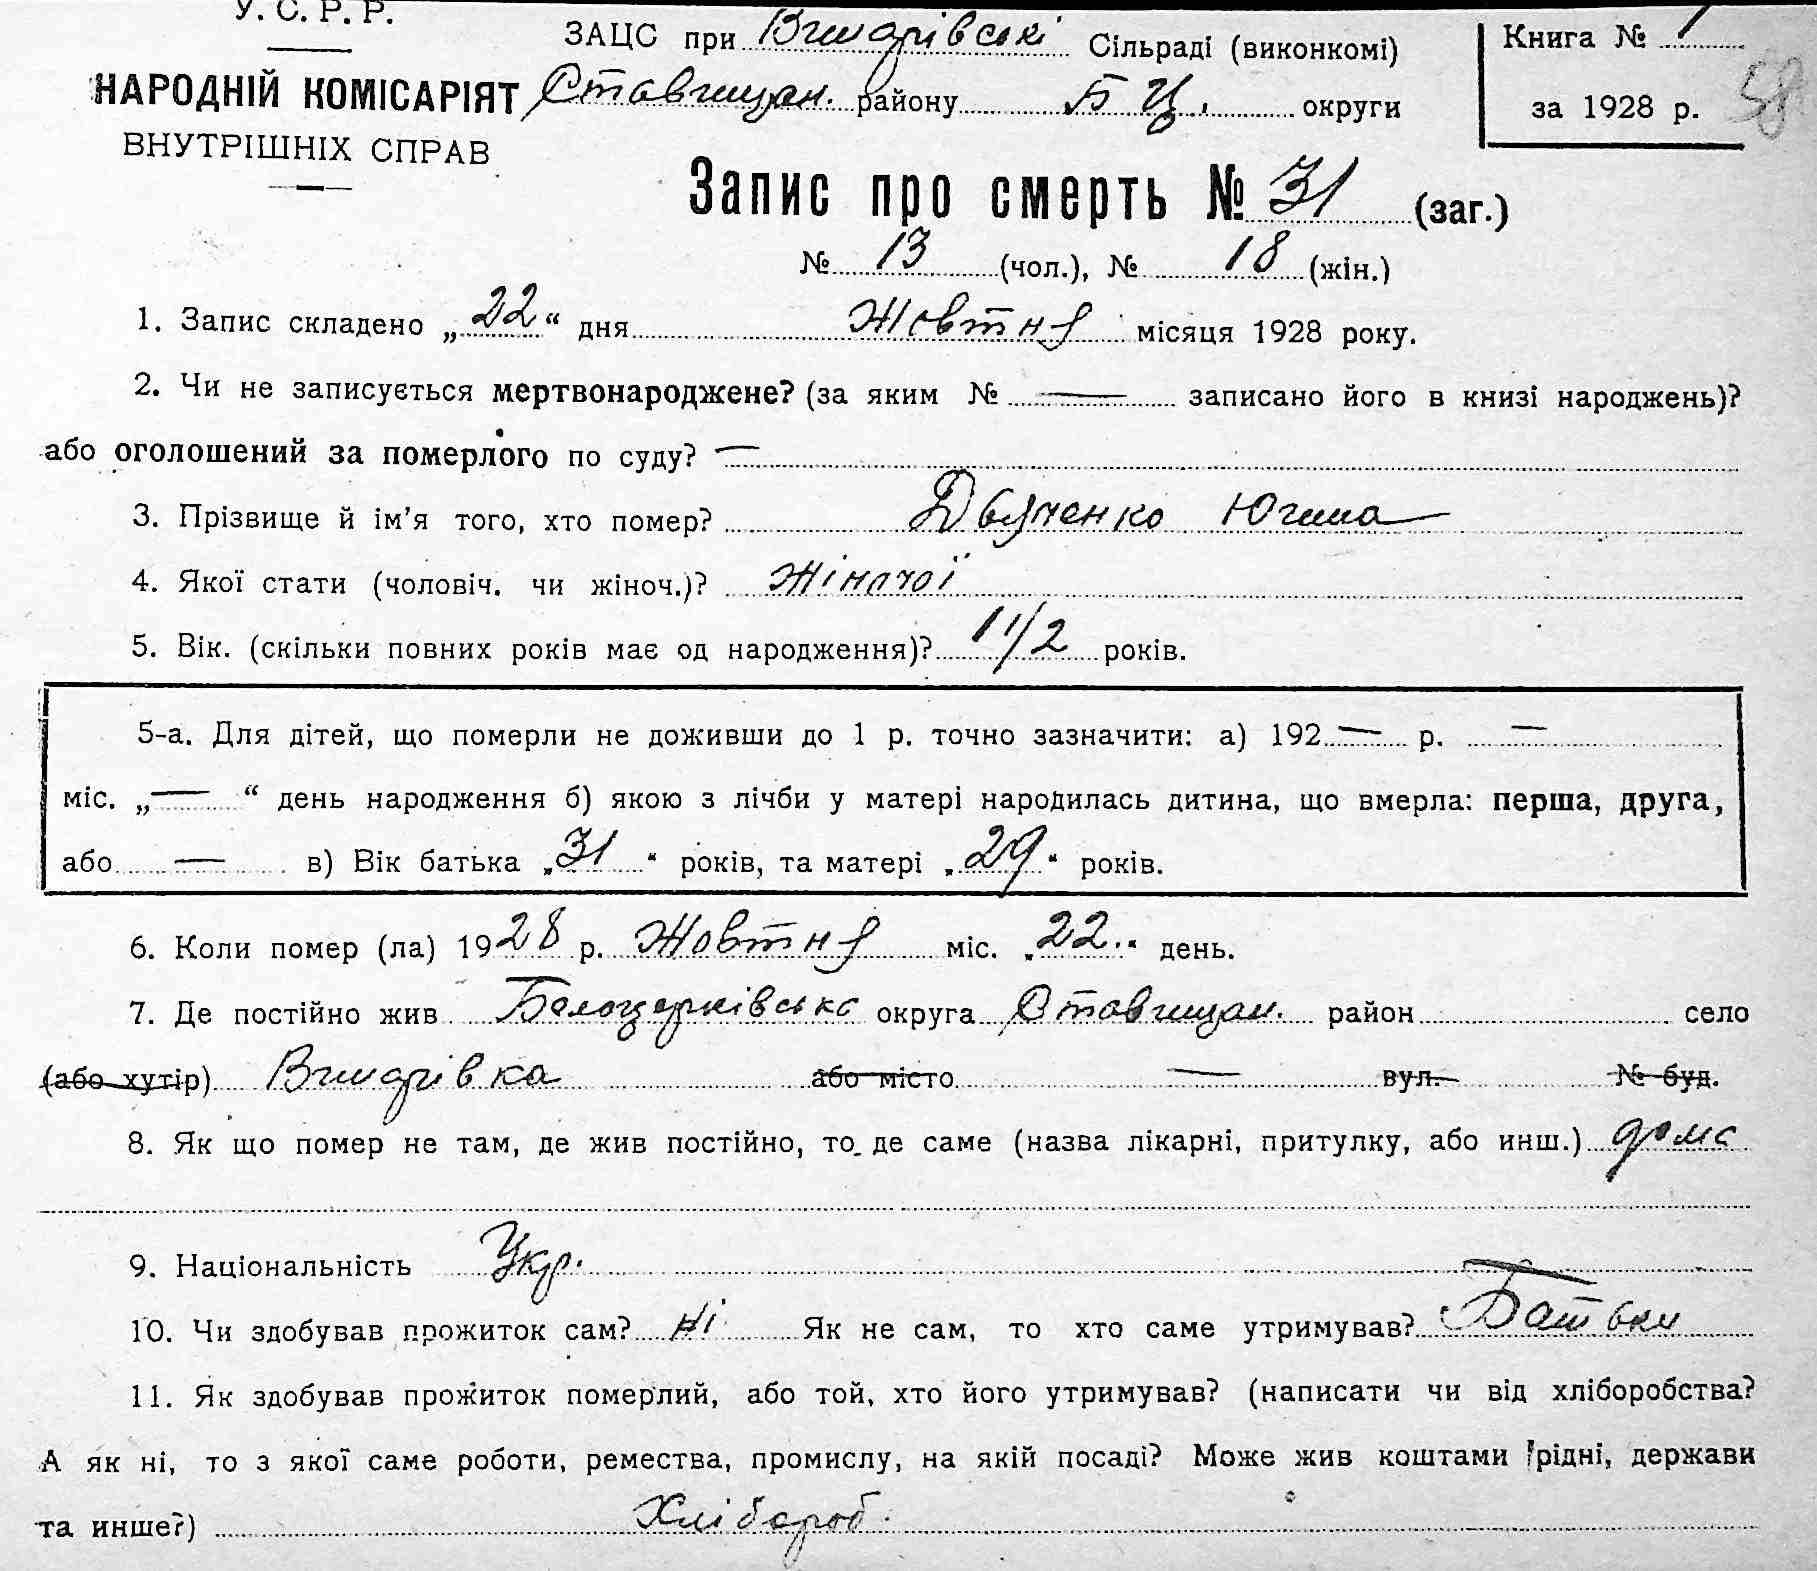 У. С. Р. Р.
НАРОДНІЙ КОМІСАРІЯТ
ВНУТРІШНІХ СПРАВ
ЗАЦС при Винарівські Сільраді (виконкомі)
Ставищан. району Б Ц. округи
Книга № 1
за 1928 р.
58
Запис про смерть № 31 (заг.)
№ 13 (чол.), № 18 (жін.)
1. Запис складено „22“ дня Жовтня місяця 1928 року.
2. Чи не записується мертвонароджене? (за яким № — записано його в книзі народжень)?
або оголошений за померлого по суду? —
3. Прізвище й ім’я того, хто помер? Дьяченко Югина
4. Якої стати (чоловіч. чи жіноч.)? Жіночої
5. Вік. (скільки повних років має од народження)? 1 1/2 років.
5-а. Для дітей, що померли не доживши до 1 р. точно зазначити: а) 192 — р. —
міс. „—“ день народження б) якою з лічби у матері народилась дитина, що вмерла: перша, друга,
або — в) Вік батька „31“ років, та матері „29“ років.
6. Коли помер (ла) 1928 р. Жовтня міс. „22.“ день.
7. Де постійно жив Белоцерківська округа Ставищан. район село
(або хутір) Винарівка або місто — вул. № буд.
8. Як що помер не там, де жив постійно, то де саме (назва лікарні, притулку, або инш.) дома
9. Національність Укр.
10. Чи здобував прожиток сам? ні Як не сам, то хто саме утримував? Батьки
11. Як здобував прожиток померлий, або той, хто його утримував? (написати чи від хліборобства?
А як ні, то з якої саме роботи, ремества, промислу, на якій посаді? Може жив коштами рідні, держави
та инше?) Хлібороб.